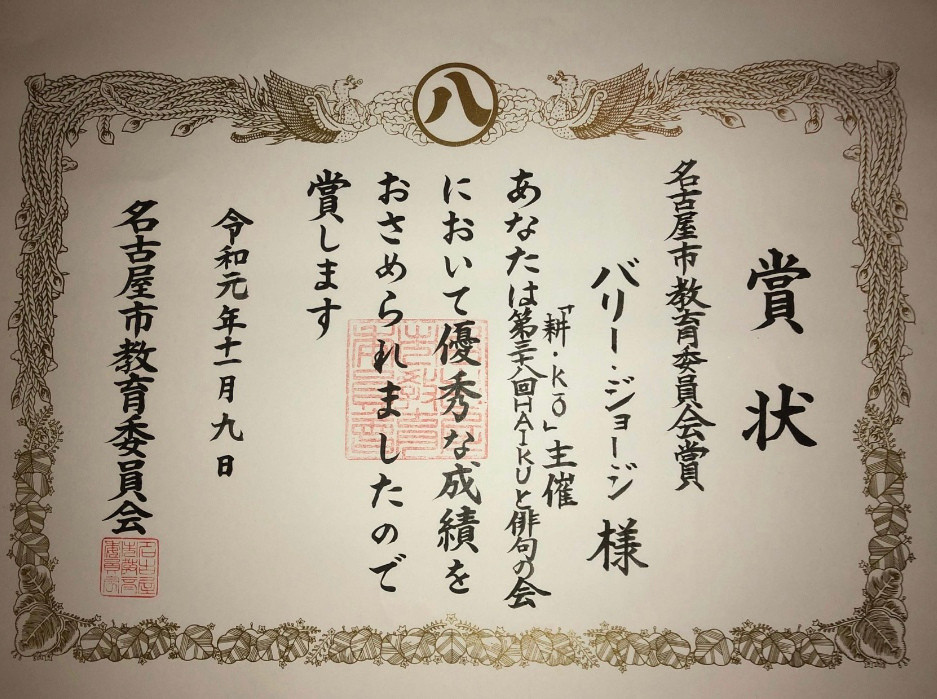 八
賞状
名古屋市教育委員会賞
バリー・ジョージ 様
「耕・Kō」主催
あなたは第二十八回HAIKUと俳句の会
において優秀な成績を
おさめられましたので
賞します
令和元年十一月九日
名古屋市教育委員会